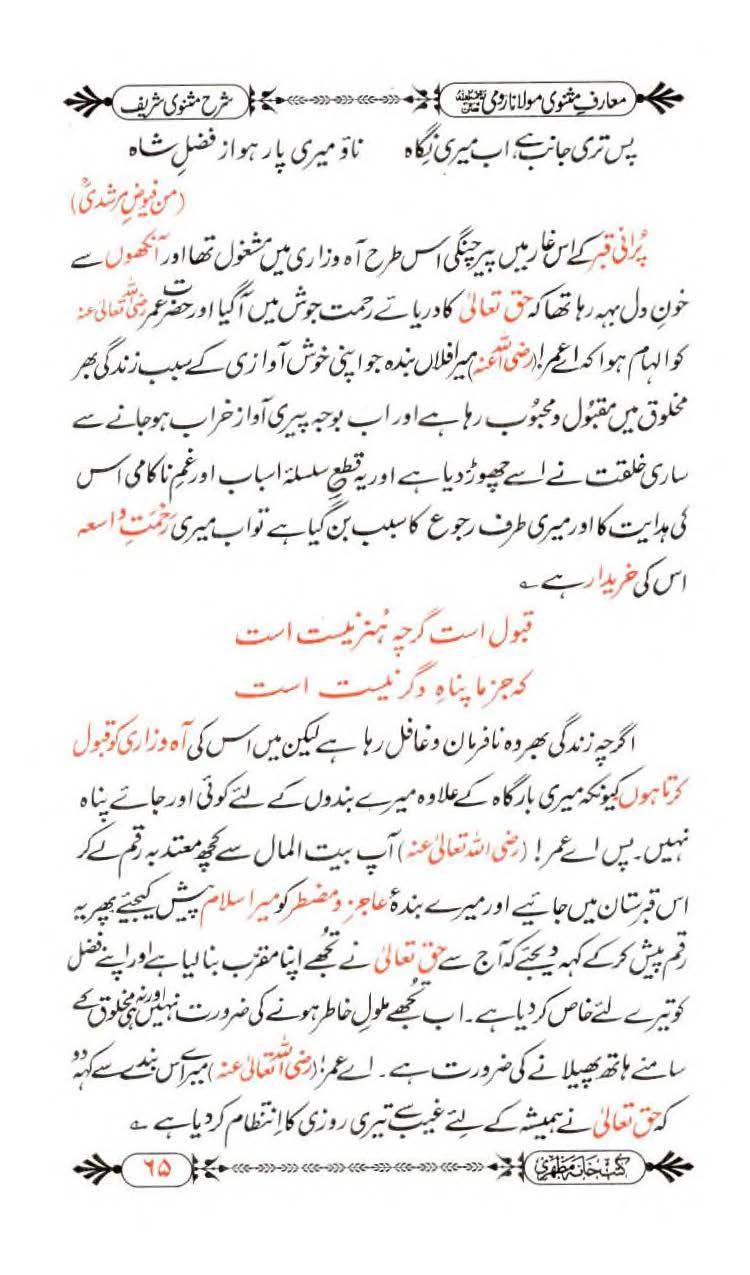 معارفِ مثنوی مولانا رومی رحمۃ اللہ تعالیٰ شرح مثنوی شریف
پس تری جانب ہے اب میری نگاہ ناؤ میری پار ہو از فضلِ شاہ
(من فیوض مرشدیؒ)
پُرانی قبر کے اس غار میں پیر چنگی اس طرح آہ وزاری میں مشغول تھا اور آنکھوں سے
خونِ دل بہہ رہا تھا کہ حق تعالیٰ کا دریائے رحمت جوش میں آگیا اور حضرت عمر رضی اللہ تعالیٰ عنہ
کو الہام ہوا کہ اے عمر! (رضی اللہ عنہ) میرا فلاں بندہ جو اپنی خوش آوازی کے سبب زندگی بھر
مخلوق میں مقبُول و محبُوب رہا ہے اور اب بوجہ پیری آواز خراب ہوجانے سے
ساری خلقت نے اسے چھوڑ دیا ہے اور یہ قطعِ سلسلۂ اسباب اور غمِ ناکامی اس
کی ہدایت کا اور میری طرف رجوع کا سبب بن گیا ہے تو اب میری رَحْمَتِ واسعہ
اس کی خریدار ہے ؎
قبول است گرچہ ہُنر نیست است
کہ جز ما پناہِ دگر نیست است
اگرچہ زندگی بھر وہ نافرمان و غافل رہا ہے لیکن میں اس کی آہ وزاری کو قبول
کرتا ہوں کیونکہ میری بارگاہ کے علاوہ میرے بندوں کے لئے کوئی اور جائے پناہ
نہیں۔ پس اے عمر! (رضی اللہ تعالیٰ عنہ) آپ بیت المال سے کچھ معتدبہ رقم لے کر
اس قبرستان میں جائیے اور میرے بندۂ عاجز و مضطر کو میرا سلام پیش کیجئے پھر یہ
رقم پیش کرکے کہہ دیجئے کہ آج سے حق تعالیٰ نے تُجھے اپنا مقرّب بنا لیا ہے اور اپنے فضل
کو تیرے لئے خاص کر دیا ہے۔ اب تُجھے ملولِ خاطر ہونے کی ضرورت نہیں اور نہ ہی مخلوق کے
سامنے ہاتھ پھیلانے کی ضرورت ہے۔ اے عمر! (رضی اللہ تعالیٰ عنہ) میرے اس بندے سے کہہ دو
کہ حق تعالیٰ نے ہمیشہ کے لئے غیب سے تیری روزی کا اِنتظام کر دیا ہے ؎
کتب خانہ مظہری ۶۵